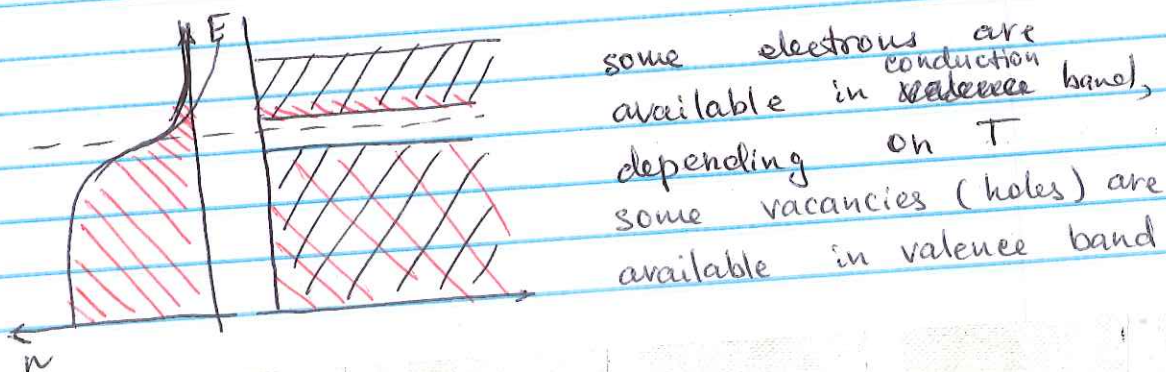 E
some electrons are
conduction
available in valence band,
depending on T
some vacancies (holes) are
available in valence band
n